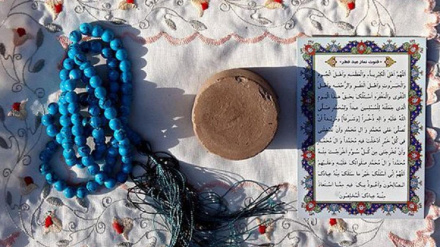 «قنوت نماز عید فطر»
اَللّهُمَّ اَهْلَ الْكِبْرِیاءِ وَالْعَظَمَهِ وَاَهْلَ الْجُودِ
وَالْجَبَرُوتِ وَاَهْلَ الْعَفْوِ وَالرَّحْمَهِ وَاَهْلَ
التَّقْوی وَالْمَغْفِرَهِ اَسْئَلُكَ بِحَقِّ هذَا الْیومِ
الَّذی جَعَلْتَهُ لِلْمُسْلِمینَ عیداً وَلِمُحَمَّدٍ صَلَّی
اللهُ عَلَیهِ وَ الِهِ ذُخْراً وَمَزیداً اَنْ
تُصَلِّی عَلی مُحَمَّدٍ وَ الِ مُحَمَّدٍ وَاَنْ تُدْخِلَنی
فی كُلِّ خَیرٍ اَدْخَلْتَ فیهِ مُحَمَّداً وَ الَ مُحَمَّدٍ
وَاَنْ تُخْرِجَنی مِنْ كُلِّ سُوءٍ اَخْرَجْتَ مِنْهُ
مُحَمَّداً وَ الَ مُحَمَّدٍ صَلَواتُكَ عَلَیهِ وَعَلَیهِمْ
اَللّهُمَّ اِنّی اَسْئَلُكَ خَیرَ ما سَئَلَكَ مِنْهُ عِبادُكَ
الصّالِحُونَ وَاَعُوذُ بِكَ فیهِ مِمَّا اسْتَعاذَ
مِنْهُ عِبادُكَ الْمُخْلِصُونَ